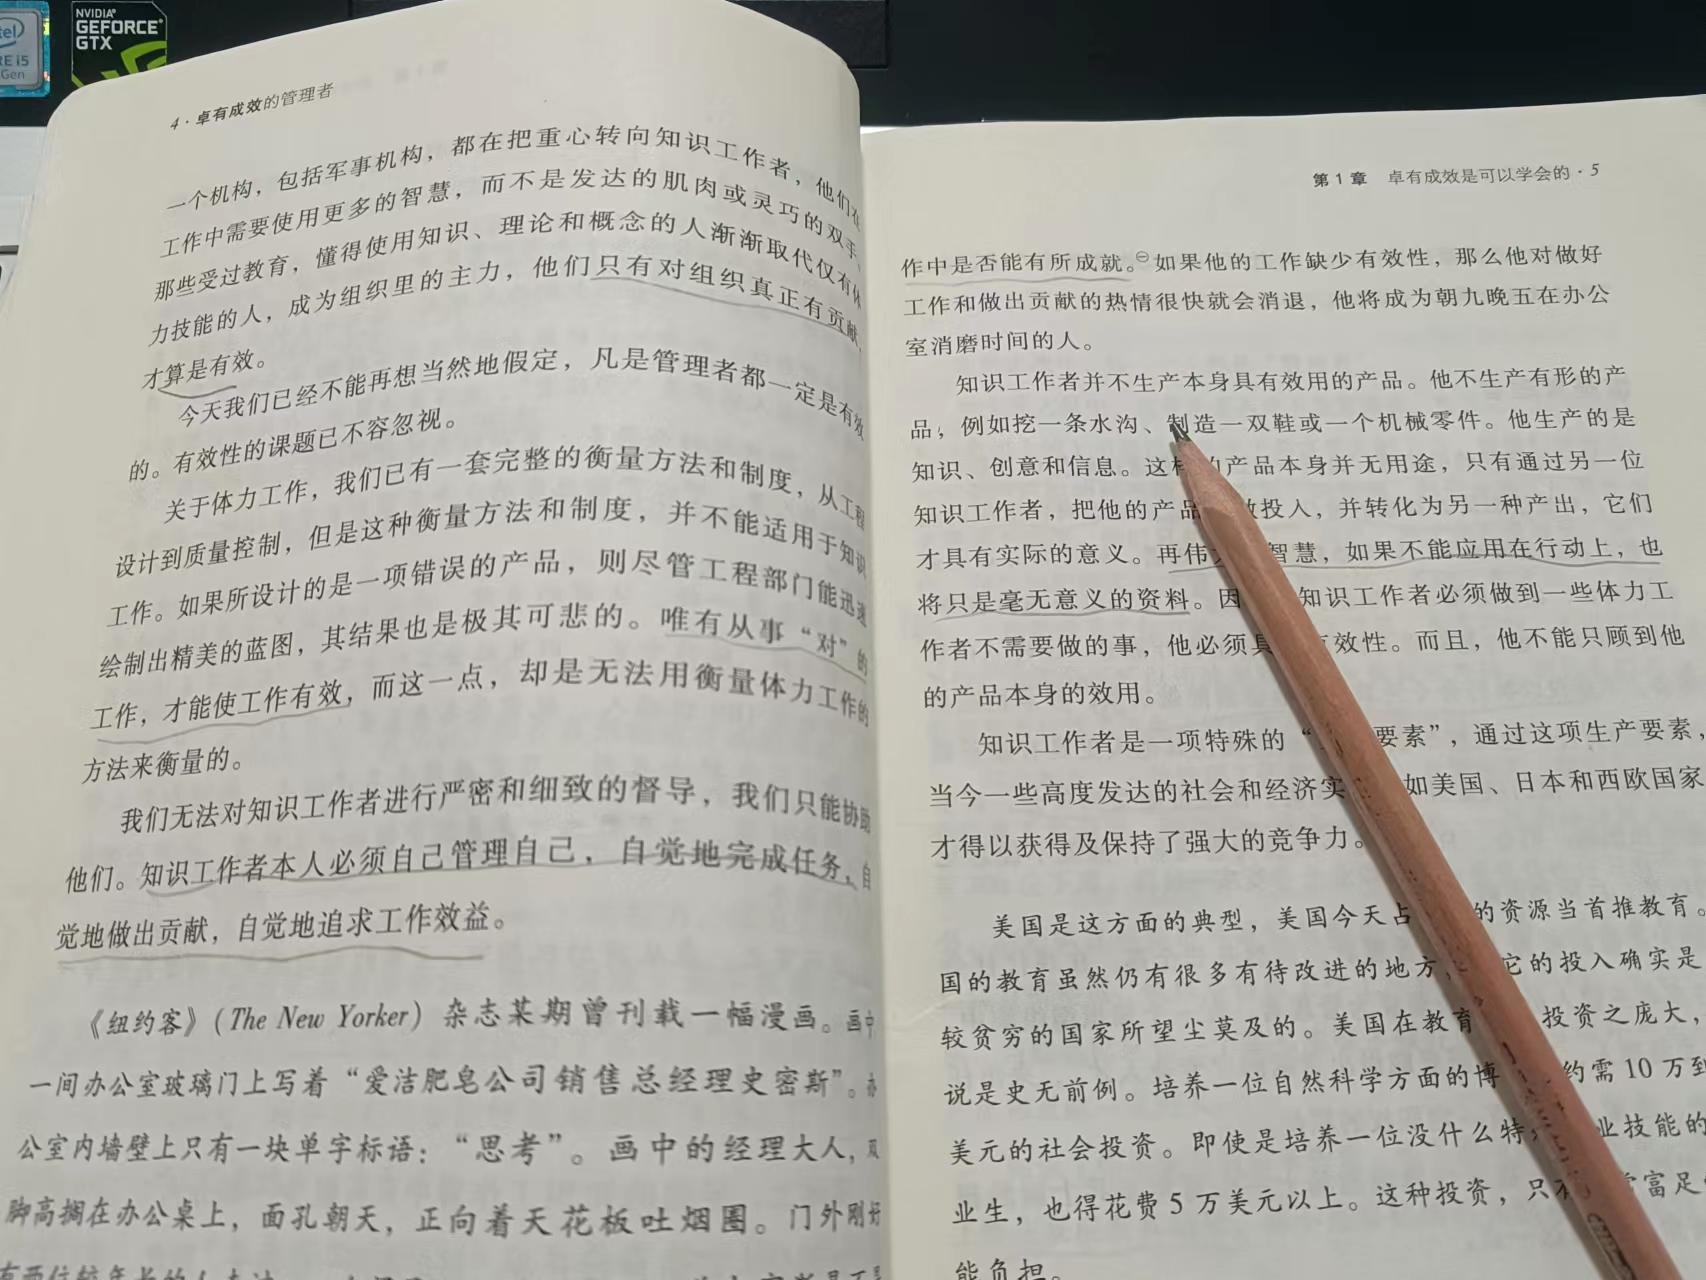 intel
CORE i5
Gen
NVIDIA
GEFORCE
GTX
4·卓有成效的管理者
一个机构，包括军事机构，都在把重心转向知识工作者，他们在
工作中需要使用更多的智慧，而不是发达的肌肉或灵巧的双手。
那些受过教育，懂得使用知识、理论和概念的人渐渐取代仅有体
力技能的人，成为组织里的主力，他们只有对组织真正有贡献，
才算是有效。
今天我们已经不能再想当然地假定，凡是管理者都一定是有效
的。有效性的课题已不容忽视。
关于体力工作，我们已有一套完整的衡量方法和制度，从工程
设计到质量控制，但是这种衡量方法和制度，并不能适用于知识
工作。如果所设计的是一项错误的产品，则尽管工程部门能迅速
绘制出精美的蓝图，其结果也是极其可悲的。唯有从事“对”的
工作，才能使工作有效，而这一点，却是无法用衡量体力工作的
方法来衡量的。
我们无法对知识工作者进行严密和细致的督导，我们只能协助
他们。知识工作者本人必须自己管理自己，自觉地完成任务，自
觉地做出贡献，自觉地追求工作效益。
《纽约客》(The New Yorker) 杂志某期曾刊载一幅漫画。画中
一间办公室玻璃门上写着“爱洁肥皂公司销售总经理史密斯”。办
公室内墙壁上只有一块单字标语：“思考”。画中的经理大人，双
脚高搁在办公桌上，面孔朝天，正向着天花板吐烟圈。门外刚好
第1章 卓有成效是可以学会的·5
作中是否能有所成就。㊀如果他的工作缺少有效性，那么他对做好
工作和做出贡献的热情很快就会消退，他将成为朝九晚五在办公
室消磨时间的人。
知识工作者并不生产本身具有效用的产品。他不生产有形的产
品，例如挖一条水沟、制造一双鞋或一个机械零件。他生产的是
知识、创意和信息。这样的产品本身并无用途，只有通过另一位
知识工作者，把他的产品 投入，并转化为另一种产出，它们
才具有实际的意义。再伟 智慧，如果不能应用在行动上，也
将只是毫无意义的资料。因 知识工作者必须做到一些体力工
作者不需要做的事，他必须具 有效性。而且，他不能只顾到他
的产品本身的效用。
知识工作者是一项特殊的“ 要素”，通过这项生产要素，
当今一些高度发达的社会和经济实 如美国、日本和西欧国家
才得以获得及保持了强大的竞争力。
美国是这方面的典型，美国今天占 的资源当首推教育。
国的教育虽然仍有很多有待改进的地方， 它的投入确实是
较贫穷的国家所望尘莫及的。美国在教育 投资之庞大，
说是史无前例。培养一位自然科学方面的博 约需10万到
美元的社会投资。即使是培养一位没什么特 业技能的
业生，也得花费5万美元以上。这种投资，只有 富足
能负担。